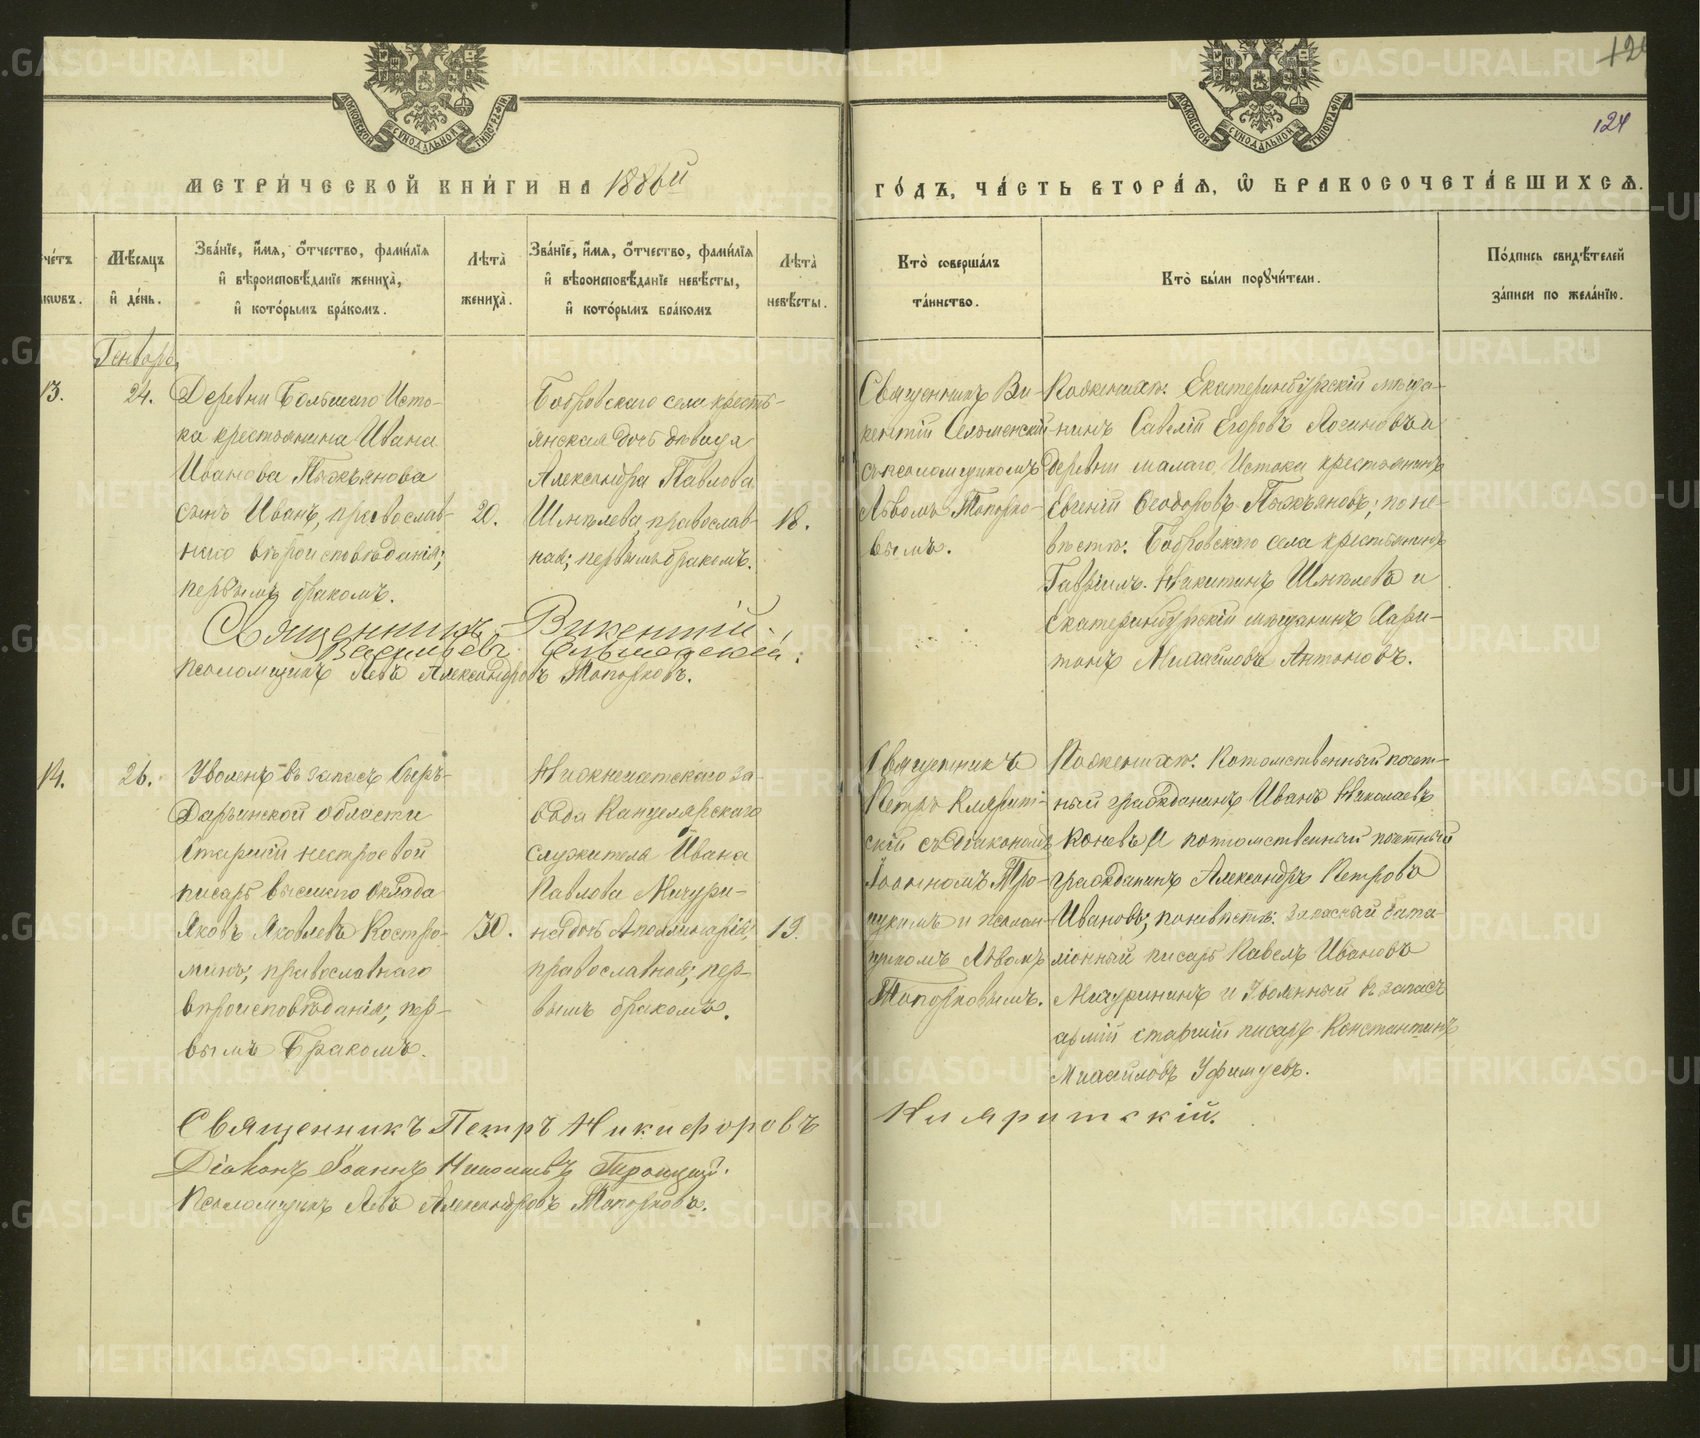 МЕТРИ́ЧЕСКОЙ КНИ́ГИ НА 1886й
ГО́ДЪ, ЧА́СТЬ ВТОРА́Ѧ, Ѽ БРАКОСОЧЕТА́ВШИХСѦ.
124
МОСКОВСКОЙ СѴНОДАЛЬНОЙ ТИПОГРАФІИ
МОСКОВСКОЙ СѴНОДАЛЬНОЙ ТИПОГРАФІИ
Мѣ́сѧцъ
и҆ де́нь.
Зва́нїе, и҆́мѧ, ѻ҆́тчество, фами́лїѧ
и҆ вѣроисповѣ́данїе жениха̀,
и҆ кото́рымъ бра́комъ.
Лѣта̀
жениха̀.
Зва́нїе, и҆́мѧ, ѻ҆́тчество, фами́лїѧ
и҆ вѣроисповѣ́данїе невѣ́сты,
и҆ кото́рымъ бра́комъ
Лѣта̀
невѣ́сты.
Кто̀ соверша́лъ
та́инство.
Кто̀ бы́ли порꙋчи́тели.
По́дпись свидѣ́телей
за́писи по жела́нїю.
Генварь
13.
24.
Деревни Большаго Исто-
ка крестьянина Ивана
Иванова Пьянъянова
сынъ Иванъ, православ-
наго вѣроисповѣданія;
первымъ бракомъ.
20.
Бобровскаго села кресть-
янская дочь дѣвица
Александра Павлова
Шмелева православ-
ная; первымъ бракомъ.
18.
Священникъ Ви-
кентій
съ псаломщикомъ
Львомъ Топорко-
вымъ.
По женихѣ: Екатеринбургскій мѣща-
нинъ Савелій Егоровъ Логиновъ и
деревни малаго Истока крестьянинъ
Евгеній Ѳеодоровъ; по не-
вѣстѣ: Бобровскаго села крестьянинъ
Гавріилъ Никитинъ Шмелевъ и
Екатеринбургскій мѣщанинъ Хари-
тонъ Михайловъ Антоновъ.
Священникъ Викентій
Васильевъ
Псаломщикъ Левъ Александровъ Топорковъ.
14.
26.
Уволенъ въ запасъ Сыръ-
Дарьинской области
старшій нестроевой
писарь высшаго оклада
Яковъ Яковлевъ Костро-
минъ; православнаго
вѣроисповѣданія; пер-
вымъ бракомъ.
30.
Нижнеисетскаго за-
вода Канцелярскаго
служителя Ивана
Павлова Мичури-
на дочь Аполлинарія;
православная; пер-
вымъ бракомъ.
19.
Священникъ
Петръ Кляритс-
скій съ діакономъ
Іоанномъ Тро-
ицкимъ и псалом-
щикомъ Львомъ
Топорковымъ.
По женихѣ: Потомственный почет-
ный гражданинъ Иванъ Николаевъ
Коневъ и потомственный почетный
гражданинъ Александръ Петровъ
Ивановъ; по невѣстѣ: запасный бата-
ліонный писарь Павелъ Ивановъ
Мичуринъ и уволенный въ запасъ
арміи старшій писарь Константинъ
Михайловъ Уфимцевъ.
Священникъ Петръ Никифоровъ Кляритскій.
Діаконъ Іоаннъ Николаевъ Троицкій.
Псаломщикъ Левъ Александровъ Топорковъ.
METRIKI.GASO-URAL.RU